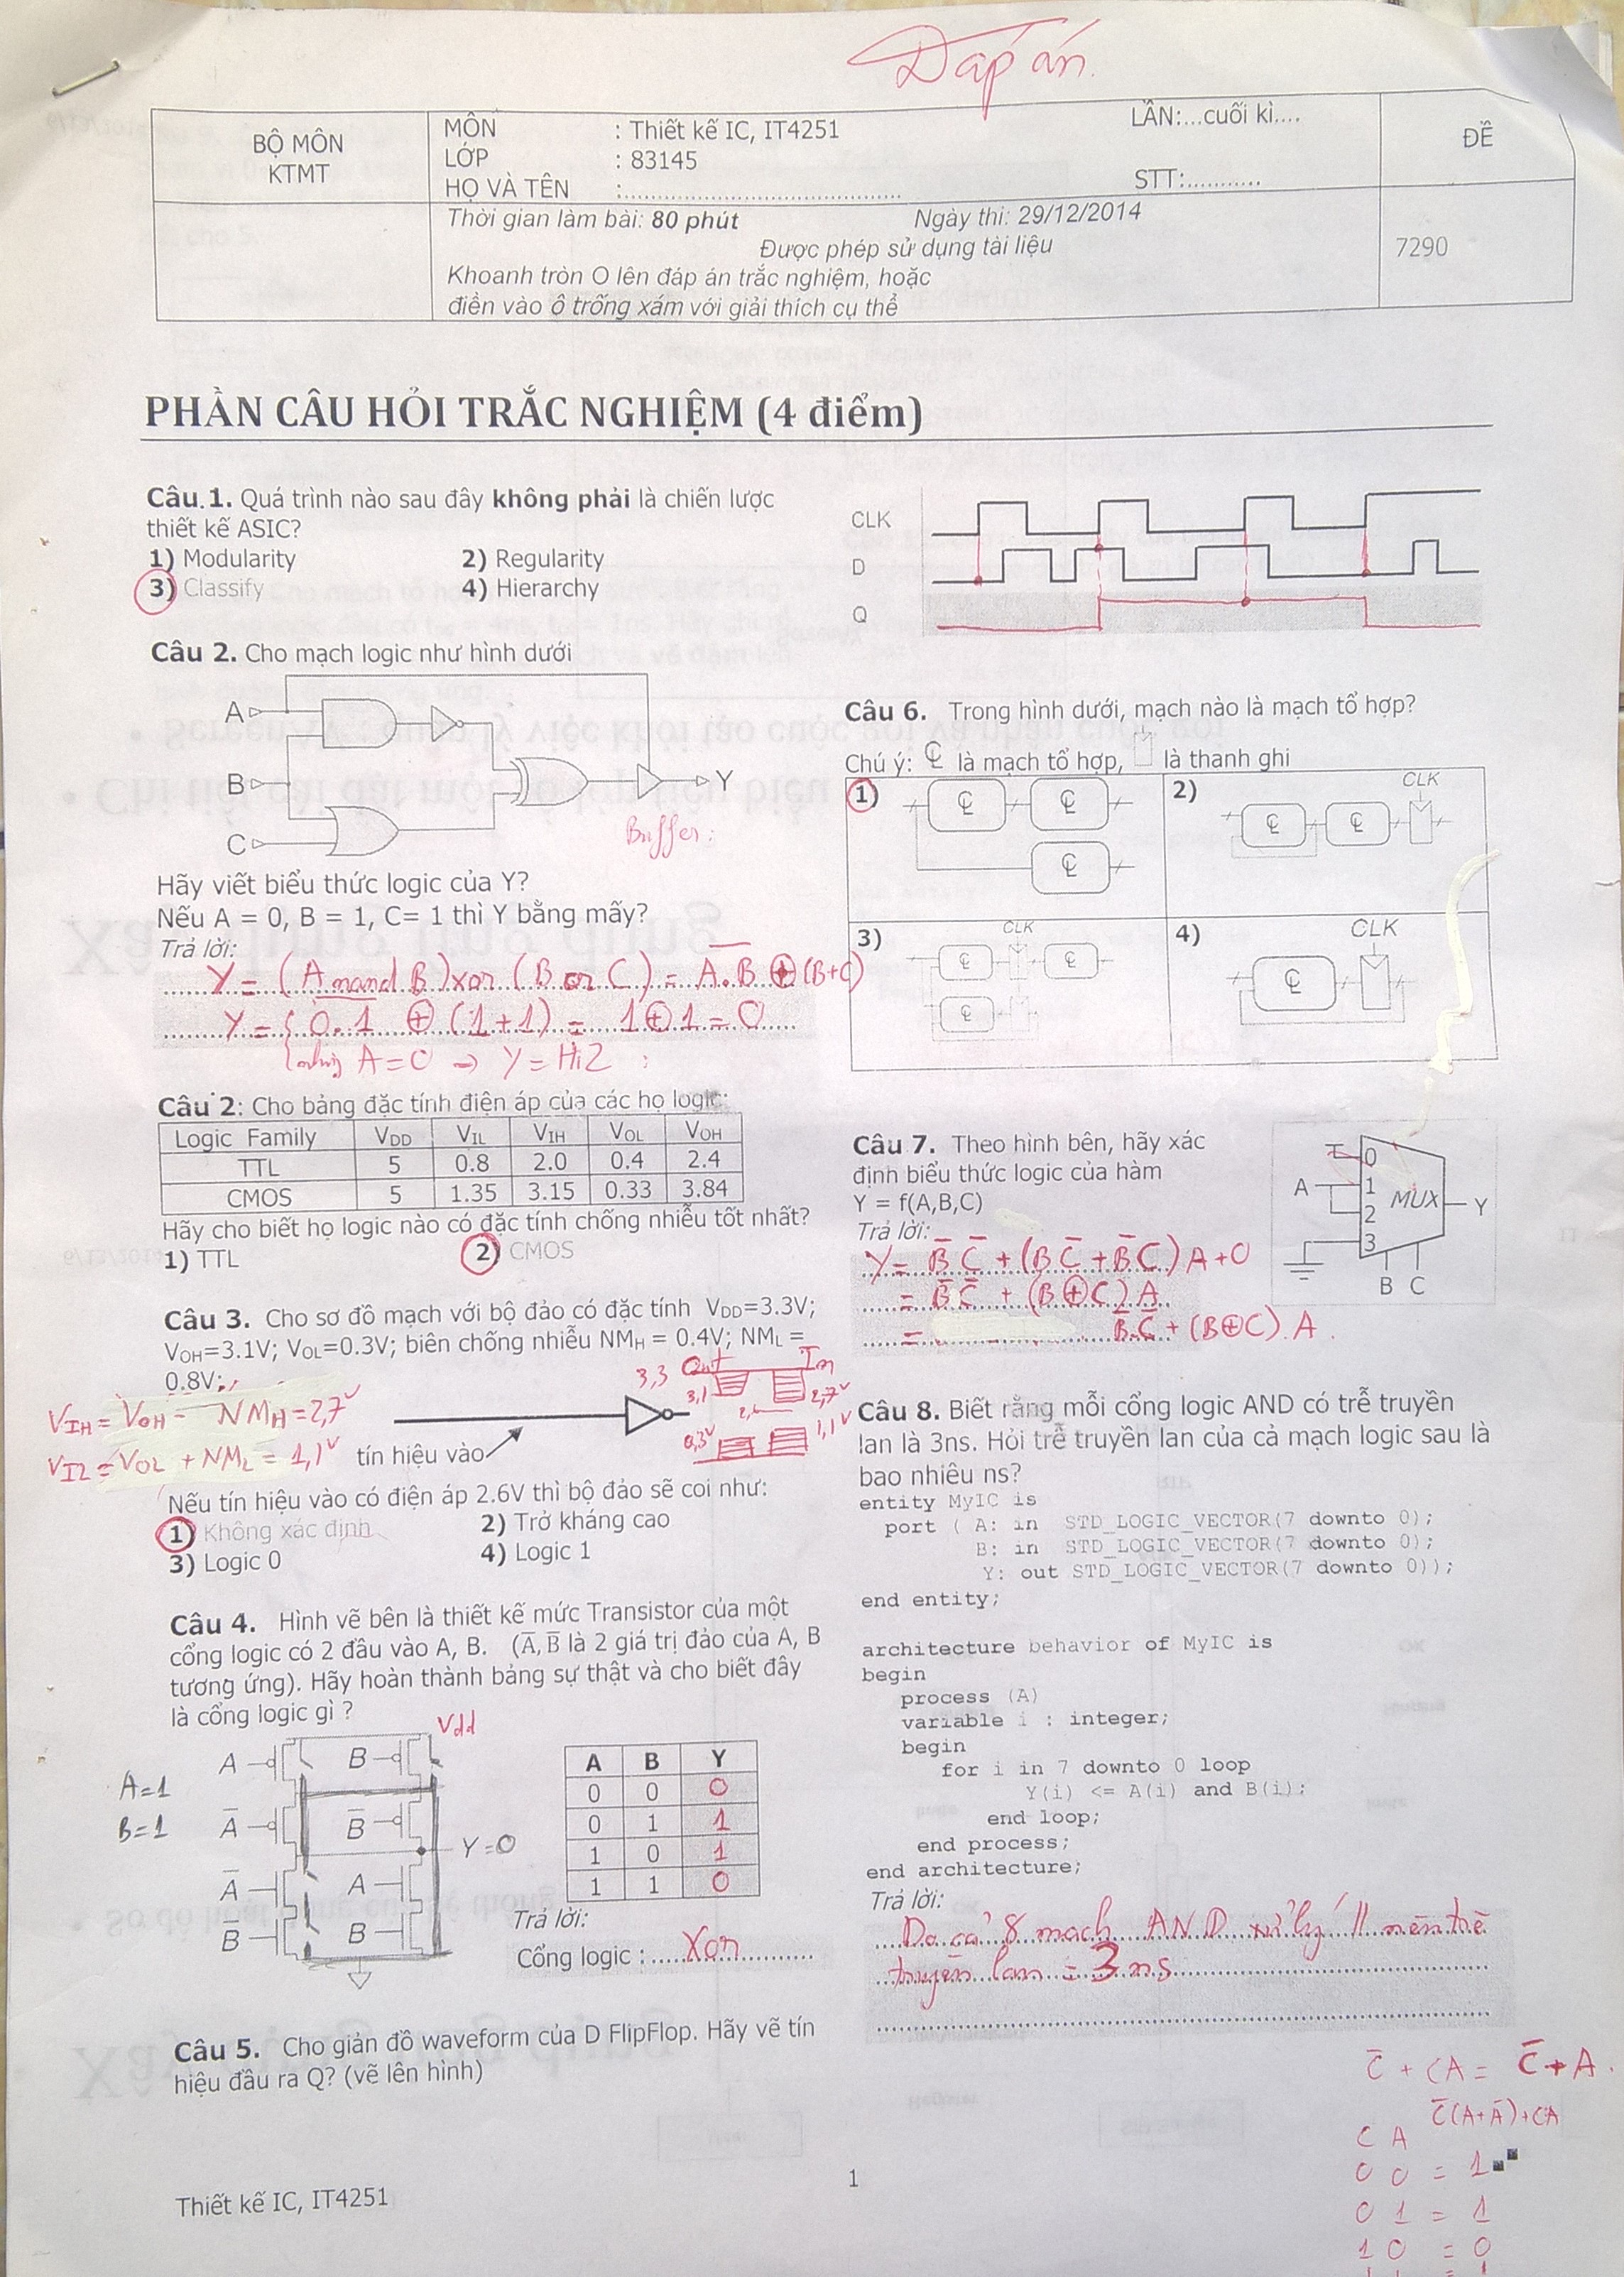 Đáp án.
BỘ MÔN
KTMT
MÔN : Thiết kế IC, IT4251
LỚP : 83145
HỌ VÀ TÊN :............................................
LẦN:...cuối kì....
STT:...........
ĐỀ
7290
Thời gian làm bài: 80 phút Ngày thi: 29/12/2014
Được phép sử dụng tài liệu
Khoanh tròn O lên đáp án trắc nghiệm, hoặc
điền vào ô trống xám với giải thích cụ thể
PHẦN CÂU HỎI TRẮC NGHIỆM (4 điểm)
Câu 1. Quá trình nào sau đây không phải là chiến lược
thiết kế ASIC?
1) Modularity 2) Regularity
3) Classify 4) Hierarchy
Câu 2. Cho mạch logic như hình dưới
A
B
C
Y
Buffer:
Hãy viết biểu thức logic của Y?
Nếu A = 0, B = 1, C= 1 thì Y bằng mấy?
Trả lời:
Y = (A nand B) xor (B or C) = A.B ⊕ (B+C)
Y = { 0.1 ⊕ (1+1) = 1⊕1 = 0
A=0 => Y = HiZ
Câu 2: Cho bảng đặc tính điện áp của các họ logic:
Logic Family VDD VIL VIH VOL VOH
TTL 5 0.8 2.0 0.4 2.4
CMOS 5 1.35 3.15 0.33 3.84
Hãy cho biết họ logic nào có đặc tính chống nhiễu tốt nhất?
1) TTL 2) CMOS
Câu 3. Cho sơ đồ mạch với bộ đảo có đặc tính VDD=3.3V;
VOH=3.1V; VOL=0.3V; biên chống nhiễu NMH = 0.4V; NML =
0.8V;
3,3 Out In
3,1 2,7V
0,3V 1,1V
VIH = VOH - NMH = 2,7V
VIL = VOL + NML = 1,1V
tín hiệu vào
Nếu tín hiệu vào có điện áp 2.6V thì bộ đảo sẽ coi như:
1) Không xác định 2) Trở kháng cao
3) Logic 0 4) Logic 1
Câu 4. Hình vẽ bên là thiết kế mức Transistor của một
cổng logic có 2 đầu vào A, B. (A̅, B̅ là 2 giá trị đảo của A, B
tương ứng). Hãy hoàn thành bảng sự thật và cho biết đây
là cổng logic gì ?
Vdd
A B
A=1
B=1
A̅ B̅
Y =0
A̅ A
B̅ B
A B Y
0 0 0
0 1 1
1 0 1
1 1 0
Trả lời:
Cổng logic :.....Xor............
Câu 5. Cho giản đồ waveform của D FlipFlop. Hãy vẽ tín
hiệu đầu ra Q? (vẽ lên hình)
CLK
D
Q
Câu 6. Trong hình dưới, mạch nào là mạch tổ hợp?
Chú ý: CL là mạch tổ hợp, là thanh ghi
1) CL CL CL
2) CL CL CLK
3) CL CLK CL CL
4) CL CLK
Câu 7. Theo hình bên, hãy xác
định biểu thức logic của hàm
Y = f(A,B,C)
Trả lời:
Y = B̅ C̅ + (B C̅ + B̅ C) A + 0
= B̅ C̅ + (B⊕C) A
= B̅.C̅ + (B⊕C).A
A
0
1
2
3
MUX
Y
B C
Câu 8. Biết rằng mỗi cổng logic AND có trễ truyền
lan là 3ns. Hỏi trễ truyền lan của cả mạch logic sau là
bao nhiêu ns?
entity MyIC is
port ( A: in STD_LOGIC_VECTOR(7 downto 0);
B: in STD_LOGIC_VECTOR(7 downto 0);
Y: out STD_LOGIC_VECTOR(7 downto 0));
end entity;
architecture behavior of MyIC is
begin
process (A)
variable i : integer;
begin
for i in 7 downto 0 loop
Y(i) <= A(i) and B(i);
end loop;
end process;
end architecture;
Trả lời:
Do cả 8 mạch AND xử lý // nên trễ
truyền lan = 3 ns
C̅ + CA = C̅ + A.
C̅(A+A̅)+CA
C A
0 0 = 1
0 1 = 1
1 0 = 0
1
Thiết kế IC, IT4251